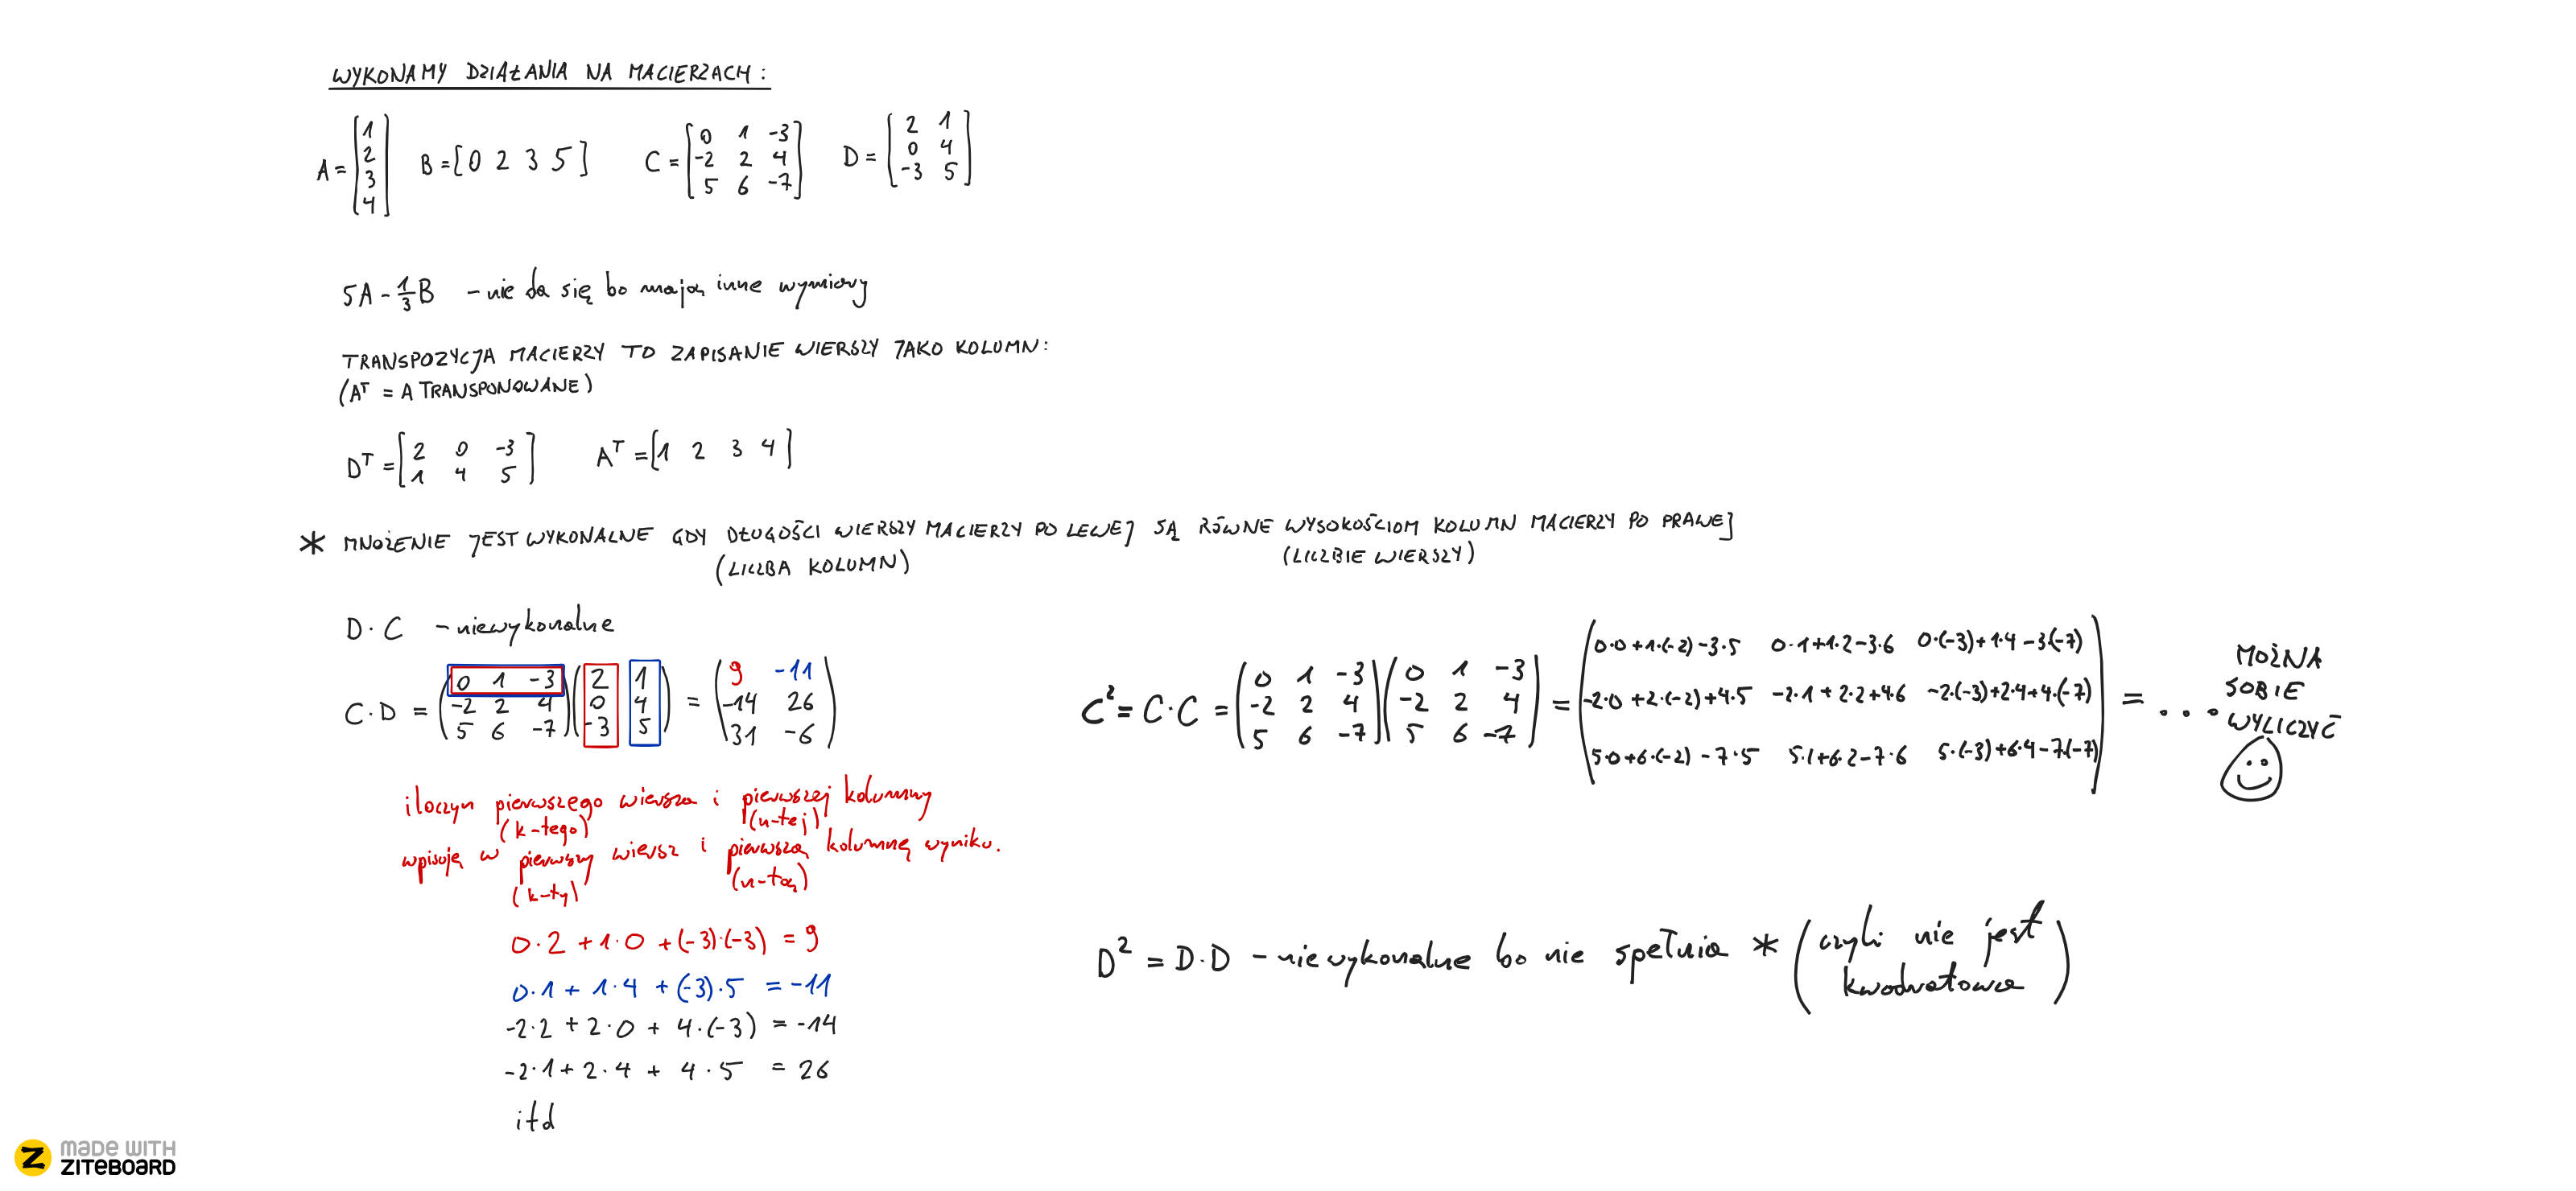 WYKONAMY DZIAŁANIA NA MACIERZACH:
A = [1 2 3 4] B = [0 2 3 5] C = [0 1 -3 -2 2 4 5 6 -7] D = [2 1 0 4 -3 5]
5A - 1/3 B - nie da się bo mają inne wymiary
TRANSPOZYCJA MACIERZY TO ZAPISANIE WIERSZY JAKO KOLUMN:
(Aᵀ = A TRANSPONOWANE)
Dᵀ = [2 0 -3 1 4 5] Aᵀ = [1 2 3 4]
* MNOŻENIE JEST WYKONALNE GDY DŁUGOŚCI WIERSZY MACIERZY PO LEWEJ SĄ RÓWNE WYSOKOŚCIOM KOLUMN MACIERZY PO PRAWEJ
(LICZBA KOLUMN) (LICZBIE WIERSZY)
D · C - niewykonalne
C · D = (0 1 -3 -2 2 4 5 6 -7) (2 1 0 4 -3 5) = (9 -11 -14 26 31 -6)
iloczyn pierwszego wiersza i pierwszej kolumny
(k-tego) (n-tej)
wpisuję w pierwszy wiersz i pierwszą kolumnę wyniku.
(k-ty) (n-tą)
0·2 + 1·0 + (-3)·(-3) = 9
0·1 + 1·4 + (-3)·5 = -11
-2·2 + 2·0 + 4·(-3) = -14
-2·1 + 2·4 + 4·5 = 26
itd
C² = C·C = (0 1 -3 -2 2 4 5 6 -7) (0 1 -3 -2 2 4 5 6 -7) =
0·0+1·(-2)-3·5 0·1+1·2-3·6 0·(-3)+1·4-3(-7)
-2·0+2·(-2)+4·5 -2·1+2·2+4·6 -2·(-3)+2·4+4·(-7)
5·0+6·(-2)-7·5 5·1+6·2-7·6 5·(-3)+6·4-7·(-7)
= ...
MOŻNA
SOBIE
WYLICZYĆ
D² = D·D - niewykonalne bo nie spełnia * (czyli nie jest
kwadratowa)
MADE WITH
ZITEBOARD